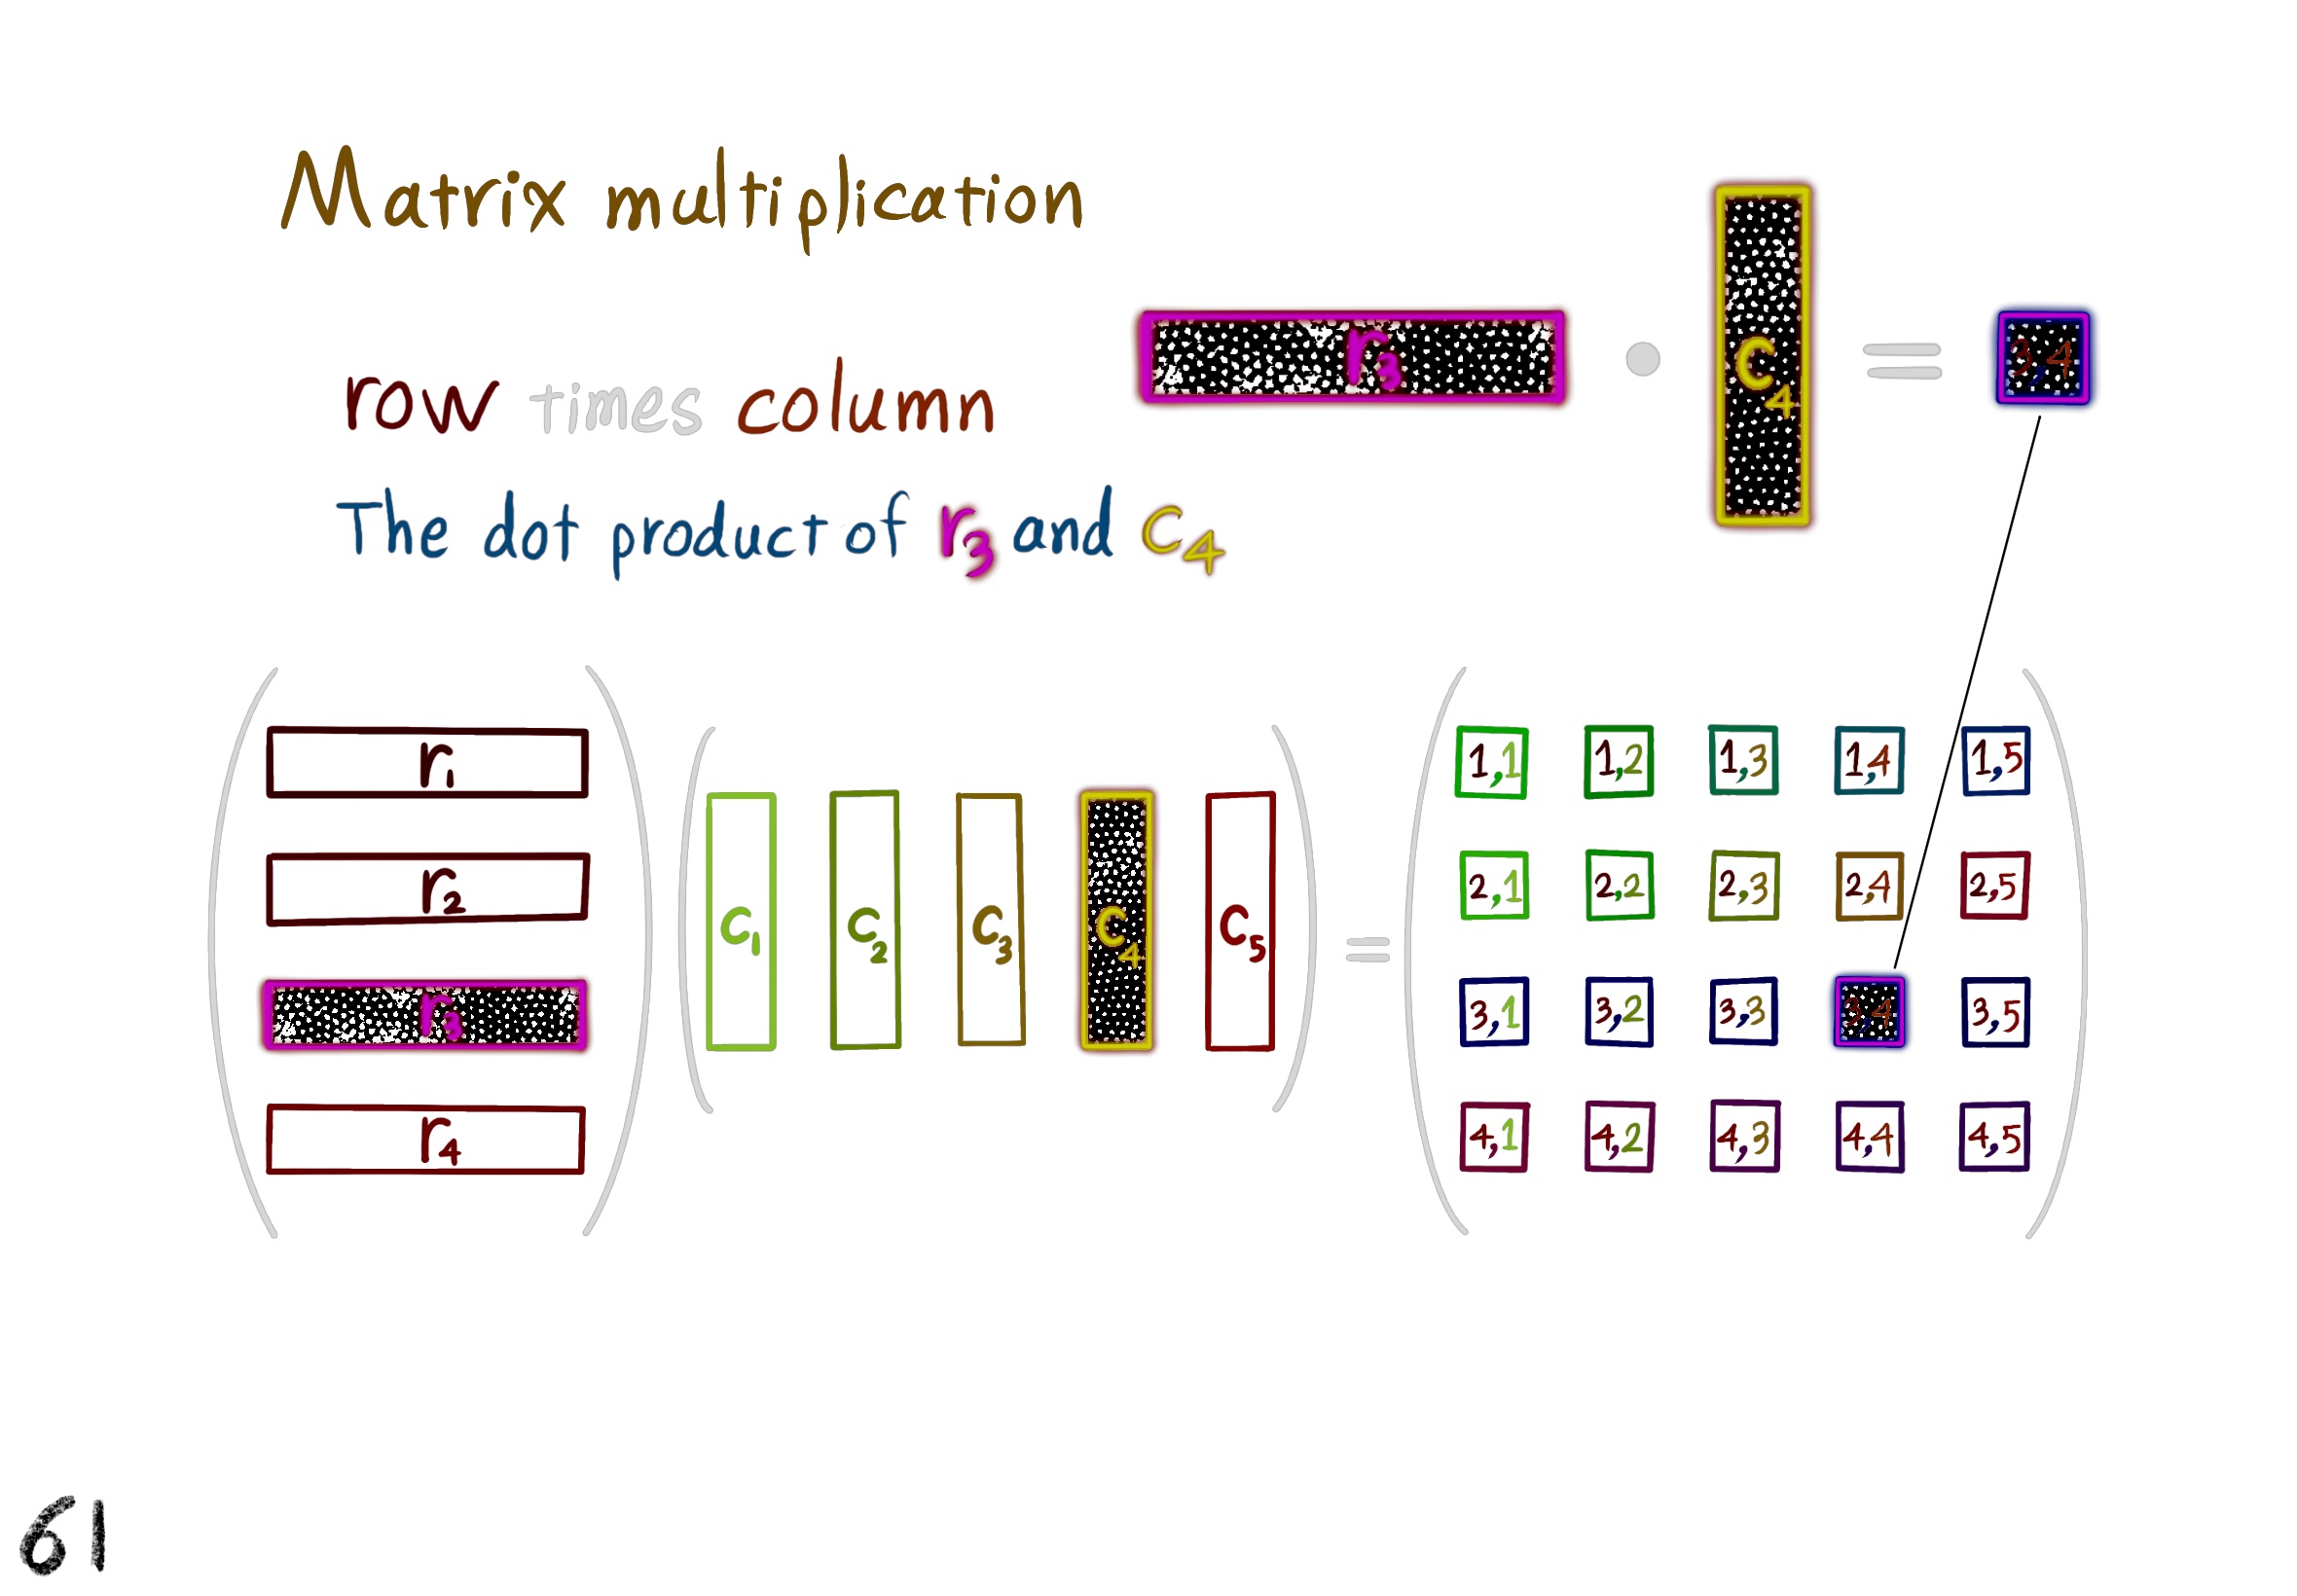 Matrix multiplication
r3 • c4 = 3,4
row times column
The dot product of r3 and c4
r1
r2
r3
r4
c1 c2 c3 c4 c5
=
1,1 1,2 1,3 1,4 1,5
2,1 2,2 2,3 2,4 2,5
3,1 3,2 3,3 3,4 3,5
4,1 4,2 4,3 4,4 4,5
61